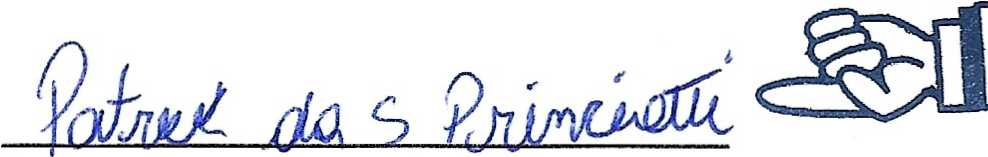 Patrick da S Princiotti